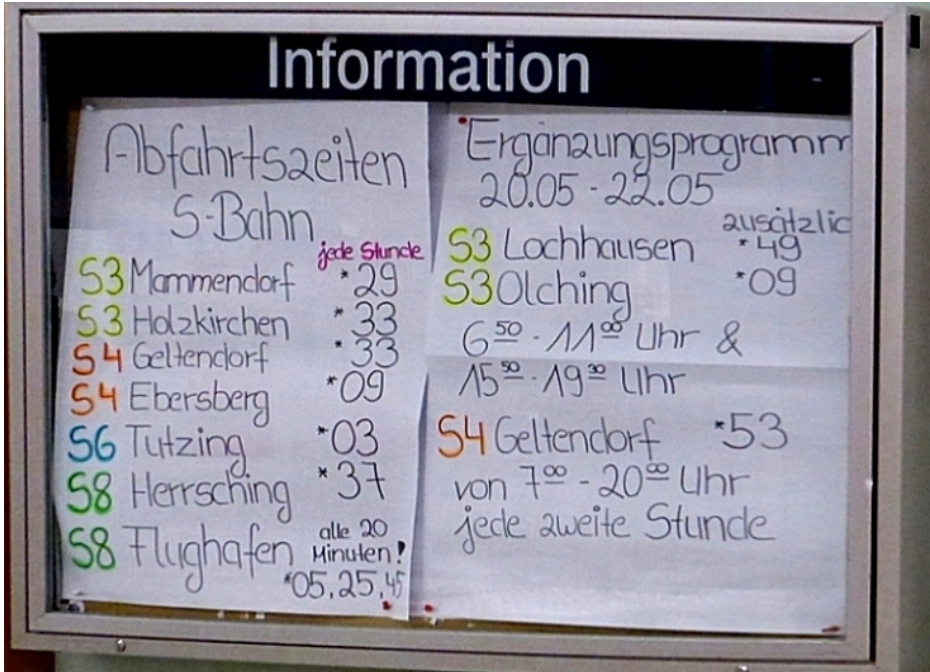 Information
Abfahrtszeiten
S-Bahn
jede Stunde
S3 Mammendorf *29
S3 Holzkirchen *33
S4 Geltendorf *33
S4 Ebersberg *09
S6 Tutzing *03
S8 Herrsching *37
S8 Flughafen alle 20
Minuten!
*05, 25, 45
Ergänzungsprogramm
20.05 - 22.05
zusätzlic
S3 Lochhausen *49
S3 Olching *09
6⁵⁰ - 11⁰⁰ Uhr &
15⁵⁰ - 19³⁰ Uhr
S4 Geltendorf *53
von 7⁰⁰ - 20⁰⁰ Uhr
jede zweite Stunde